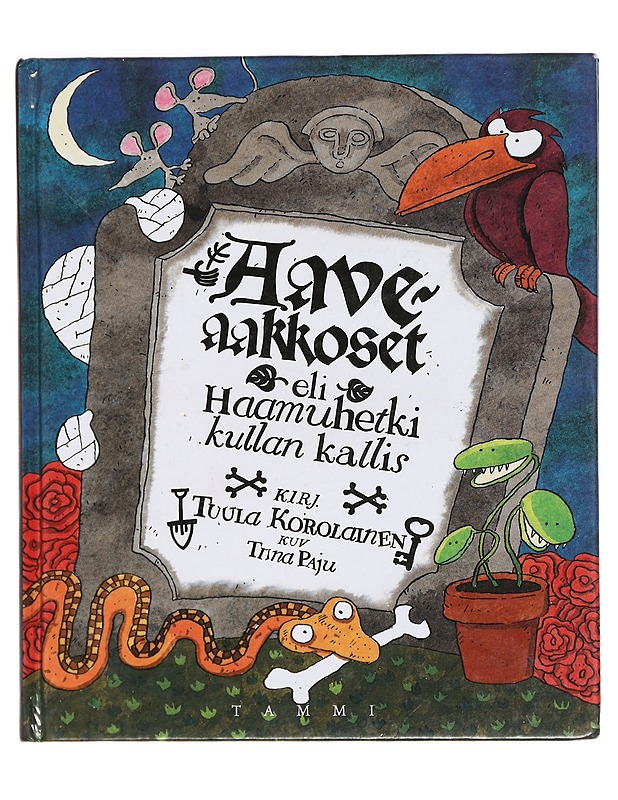 Aave-
aakkoset
eli
Haamuhetki
kullan kallis
KIRJ.
TUULA KOROLAINEN
KUV
TIINA PAJU
TAMMI